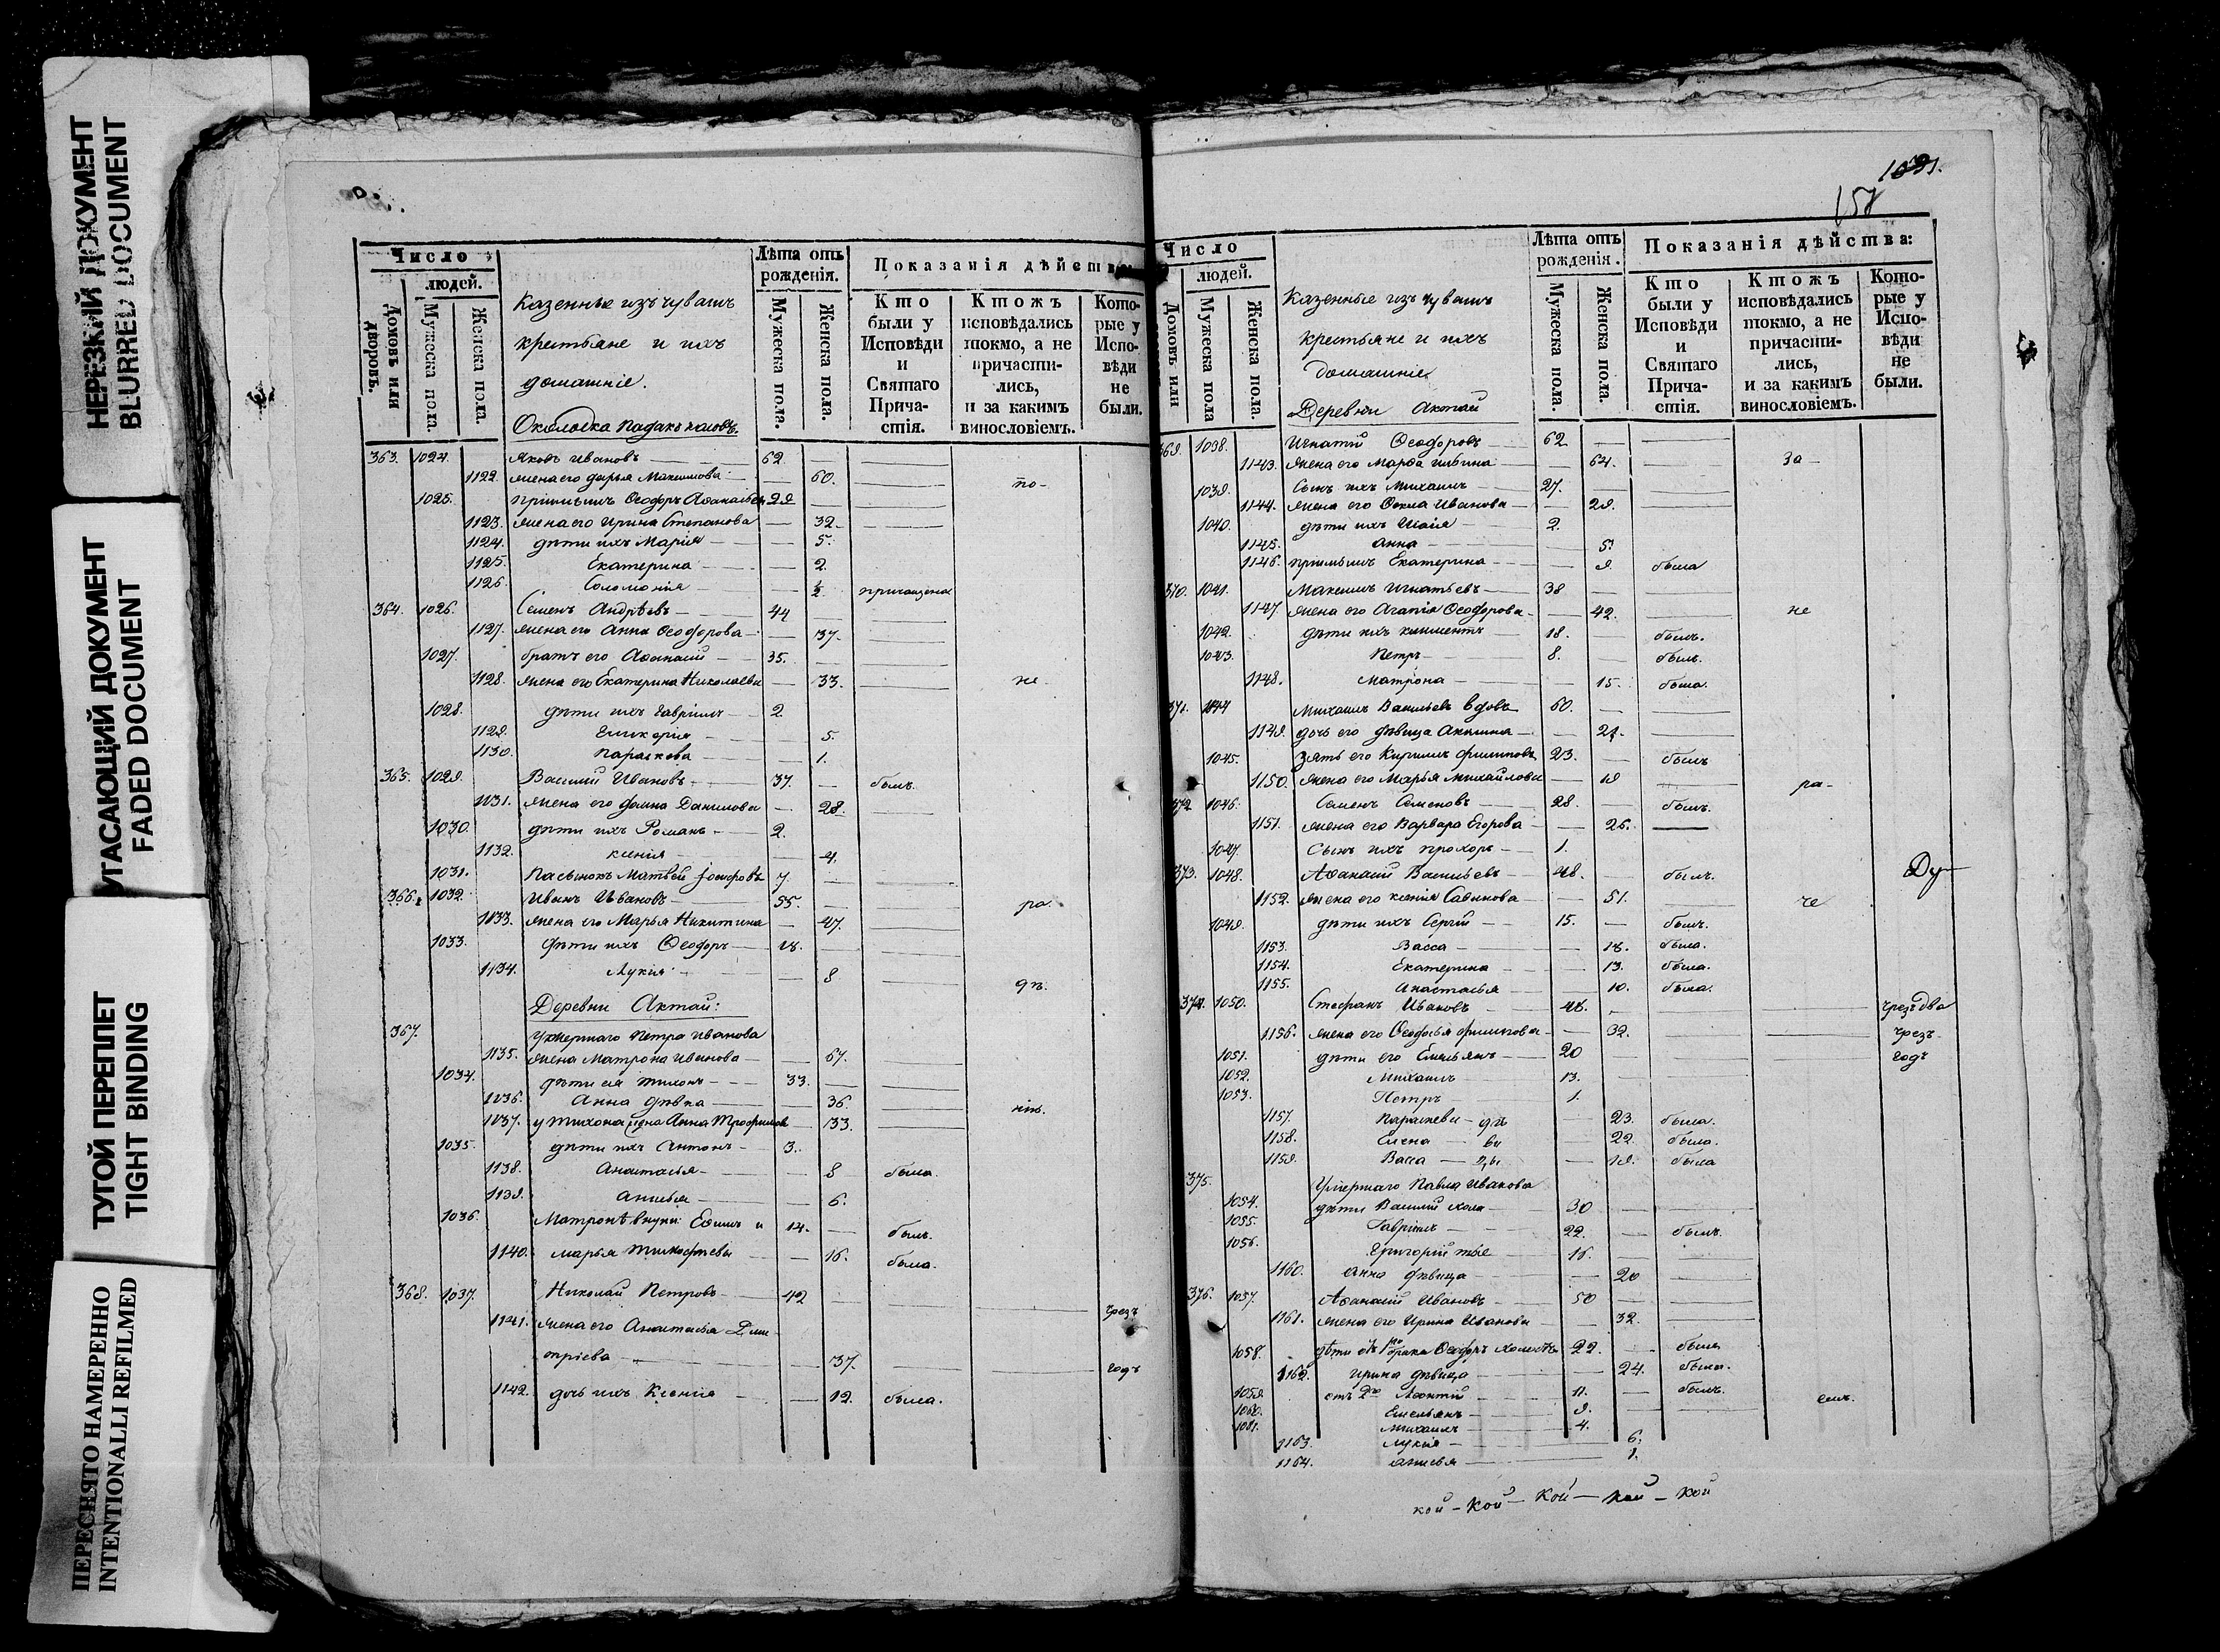 НЕРЕЗКИЙ ДОКУМЕНТ
BLURRED DOCUMENT
УГАСАЮЩИЙ ДОКУМЕНТ
FADED DOCUMENT
ТУГОЙ ПЕРЕПЛЕТ
TIGHT BINDING
ПЕРЕСНЯТО НАМЕРЕННО
INTENTIONALLI REFILMED
Число
людей.
Домовъ или дворовъ.
Мужеска пола.
Женска пола.
Казенные изъ чувашъ
крестьяне и ихъ
домашніе.
Околодка
Лѣта отъ рожденія.
Мужеска пола.
Женска пола.
Показанія дѣйства:
Кто были у Исповѣди и Святаго Причастія.
Ктожъ исповѣдались токмо, а не причастились, и за какимъ винословіемъ.
Которые у Исповѣди не были.
363. 1024. Яковъ Ивановъ 62.
1122. жена его Дарья Максимова 60. по-
1025. пріимышъ Ѳеодоръ Аѳанасьевъ 29
1123. жена его Ирина Степанова 32.
1124. дѣти ихъ Марія 5.
1125. Екатерина 2
1126. Соломонія ½ причащена
364. 1026. Семенъ Андреевъ 44
1127. жена его Анна Ѳеодорова 37.
1027. братъ его Аѳанасій 35.
1128. жена его Екатерина Николаева 33. не
1028. дѣти ихъ Гавріилъ 2
1129. Гликерія 5.
1130. Параскева 1.
365. 1029. Василій Ивановъ 37. былъ.
1131. жена его Фаина Данилова 28.
1030. дѣти ихъ Романъ 2.
1132. Ксенія 4.
1031. Пасынокъ Матвей Іосифовъ 7
366. 1032. Иванъ Ивановъ 55. ра
1133. жена его Марья Никитина 47.
1033. дѣти ихъ Ѳеодоръ 18.
1134. Лукія 8 дѣ.
Деревни Актай:
367. Умершаго Петра Иванова
1135. жена Матрона Иванова 67.
1034. дѣти ея Тихонъ 33.
1136. Анна дѣвка 36. нію.
1137. у Тихона жена Анна Трофимова 33.
1035. дѣти ихъ Антонъ 3.
1138. Анастасья 8 была.
1139. Анисья 6.
1036. Матроны внуки: Ефимъ и 14. былъ.
1140. Марья Тимофеевы 16. была.
368. 1037. Николай Петровъ 42 чрезъ
1141. жена его Анастасья Дми-
тріева 37. годъ
1142. дочь ихъ Ксенія 12. была.
158
Число
людей.
Домовъ или
Мужеска пола
Женска пола.
Казенные изъ чувашъ
крестьяне и ихъ
домашніе
Деревни Актай
Лѣта отъ рожденія.
Мужеска пола.
Женска пола.
Показанія дѣйства:
Кто были у Исповѣди и Святаго Причастія.
Ктожъ исповѣдались токмо, а не причастились, и за какимъ винословіемъ.
Которые у Исповѣди не были.
369. 1038. Игнатій Ѳеодоровъ 62.
1143. жена его Марѳа 64. за-
1039. Сынъ ихъ Михаилъ 27.
1144. жена его Ѳекла Иванова 29.
1040. дѣти ихъ Исаія 2.
1145. Анна 5.
1146. пріимышъ Екатерина 9. была
370. 1041. Максимъ Игнатьевъ 38
1147. жена его Агапія Ѳеодорова 42. не
1042. дѣти ихъ Климентъ 18. былъ.
1043. Петръ 8. былъ.
1148. Матрона 15. была.
371. 1044 Михаилъ Васильевъ вдовъ 60.
1149. дочь его дѣвица Акилина 21.
1045. зять его Кириллъ Филиповъ 23. былъ
1150. жена его Марья Михайлова 19 ра-
372. 1046. Семенъ Семеновъ 28. былъ.
1151. жена его Варвара Егорова 26.
1047. Сынъ ихъ Прохоръ 1.
373. 1048. Аѳанасій Васильевъ 48. былъ. Ду-
1152. жена его Ксенія Савинова 51. че
1049. дѣти ихъ Сергій 15. былъ.
1153. Васса 18. была.
1154. Екатерина 13. была.
1155. Анастасья 10. была.
374. 1050. Стефанъ Ивановъ 48. чрезъ два
1156. жена его Ѳеодосья Филипова 32. чрезъ
1051. дѣти его Емельянъ 20 годъ
1052. Михаилъ 13.
1053. Петръ 1.
1157. Параскева дѣ 23. была.
1158. Елена ви 22 была.
1159. Васса цы 19. была
375. Умершаго Павла Иванова
1054. дѣти Василій холо 30
1055. Гавріилъ 22. былъ.
1056. Григорій тые 16.
1160. Анна дѣвица 20
376. 1057. Аѳанасій Ивановъ 50
1161. жена его Ирина Иванова 32.
1058. дѣти отъ 1го брака Ѳеодоръ холостъ 22. былъ
1162. Ирина дѣвица 24. была.
1059. отъ 2го Леонтій 11. былъ. емъ.
1060. Емельянъ 9.
1061. Михаилъ 4.
1163. Лукія 6.
1164. Анисья 1.
кой - кой - кой - кой - кой